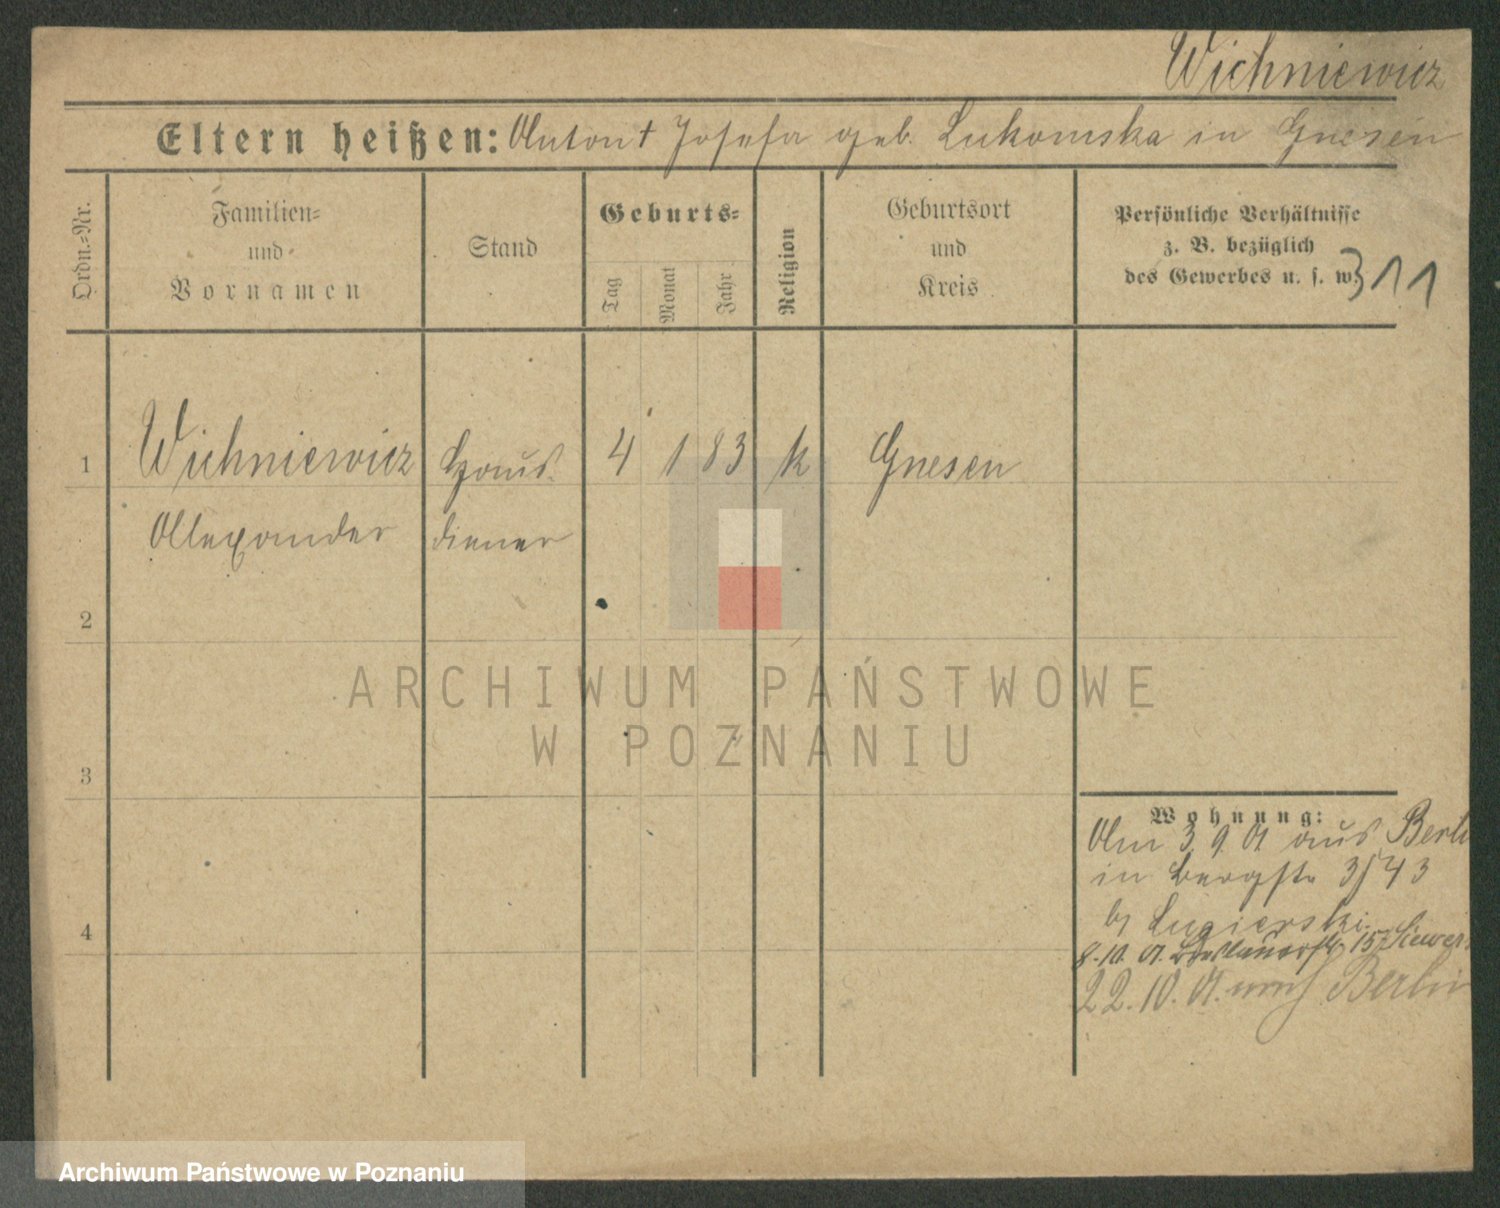 Wichniewicz
Eltern heißen: Anton † Josefa geb. Lukomska in Gnesen
Ordn.-Nr.
Familien-
und
Vornamen
Stand
Geburts-
Tag
Monat
Jahr
Religion
Geburtsort
und
Kreis
Persönliche Verhältnisse
z. B. bezüglich
des Gewerbes u. s. w.
311
1 Wichniewicz Haus- 4 1 83 k Gnesen
Allexander diener
2
ARCHIWUM PAŃSTWOWE
W POZNANIU
3
Wohnung:
Am 3 9 01 aus Berlin
in Bergstr 3/4 3
by Lugierski
4
8.10. 01. 15
22.10. 01. nach Berlin
Archiwum Państwowe w Poznaniu